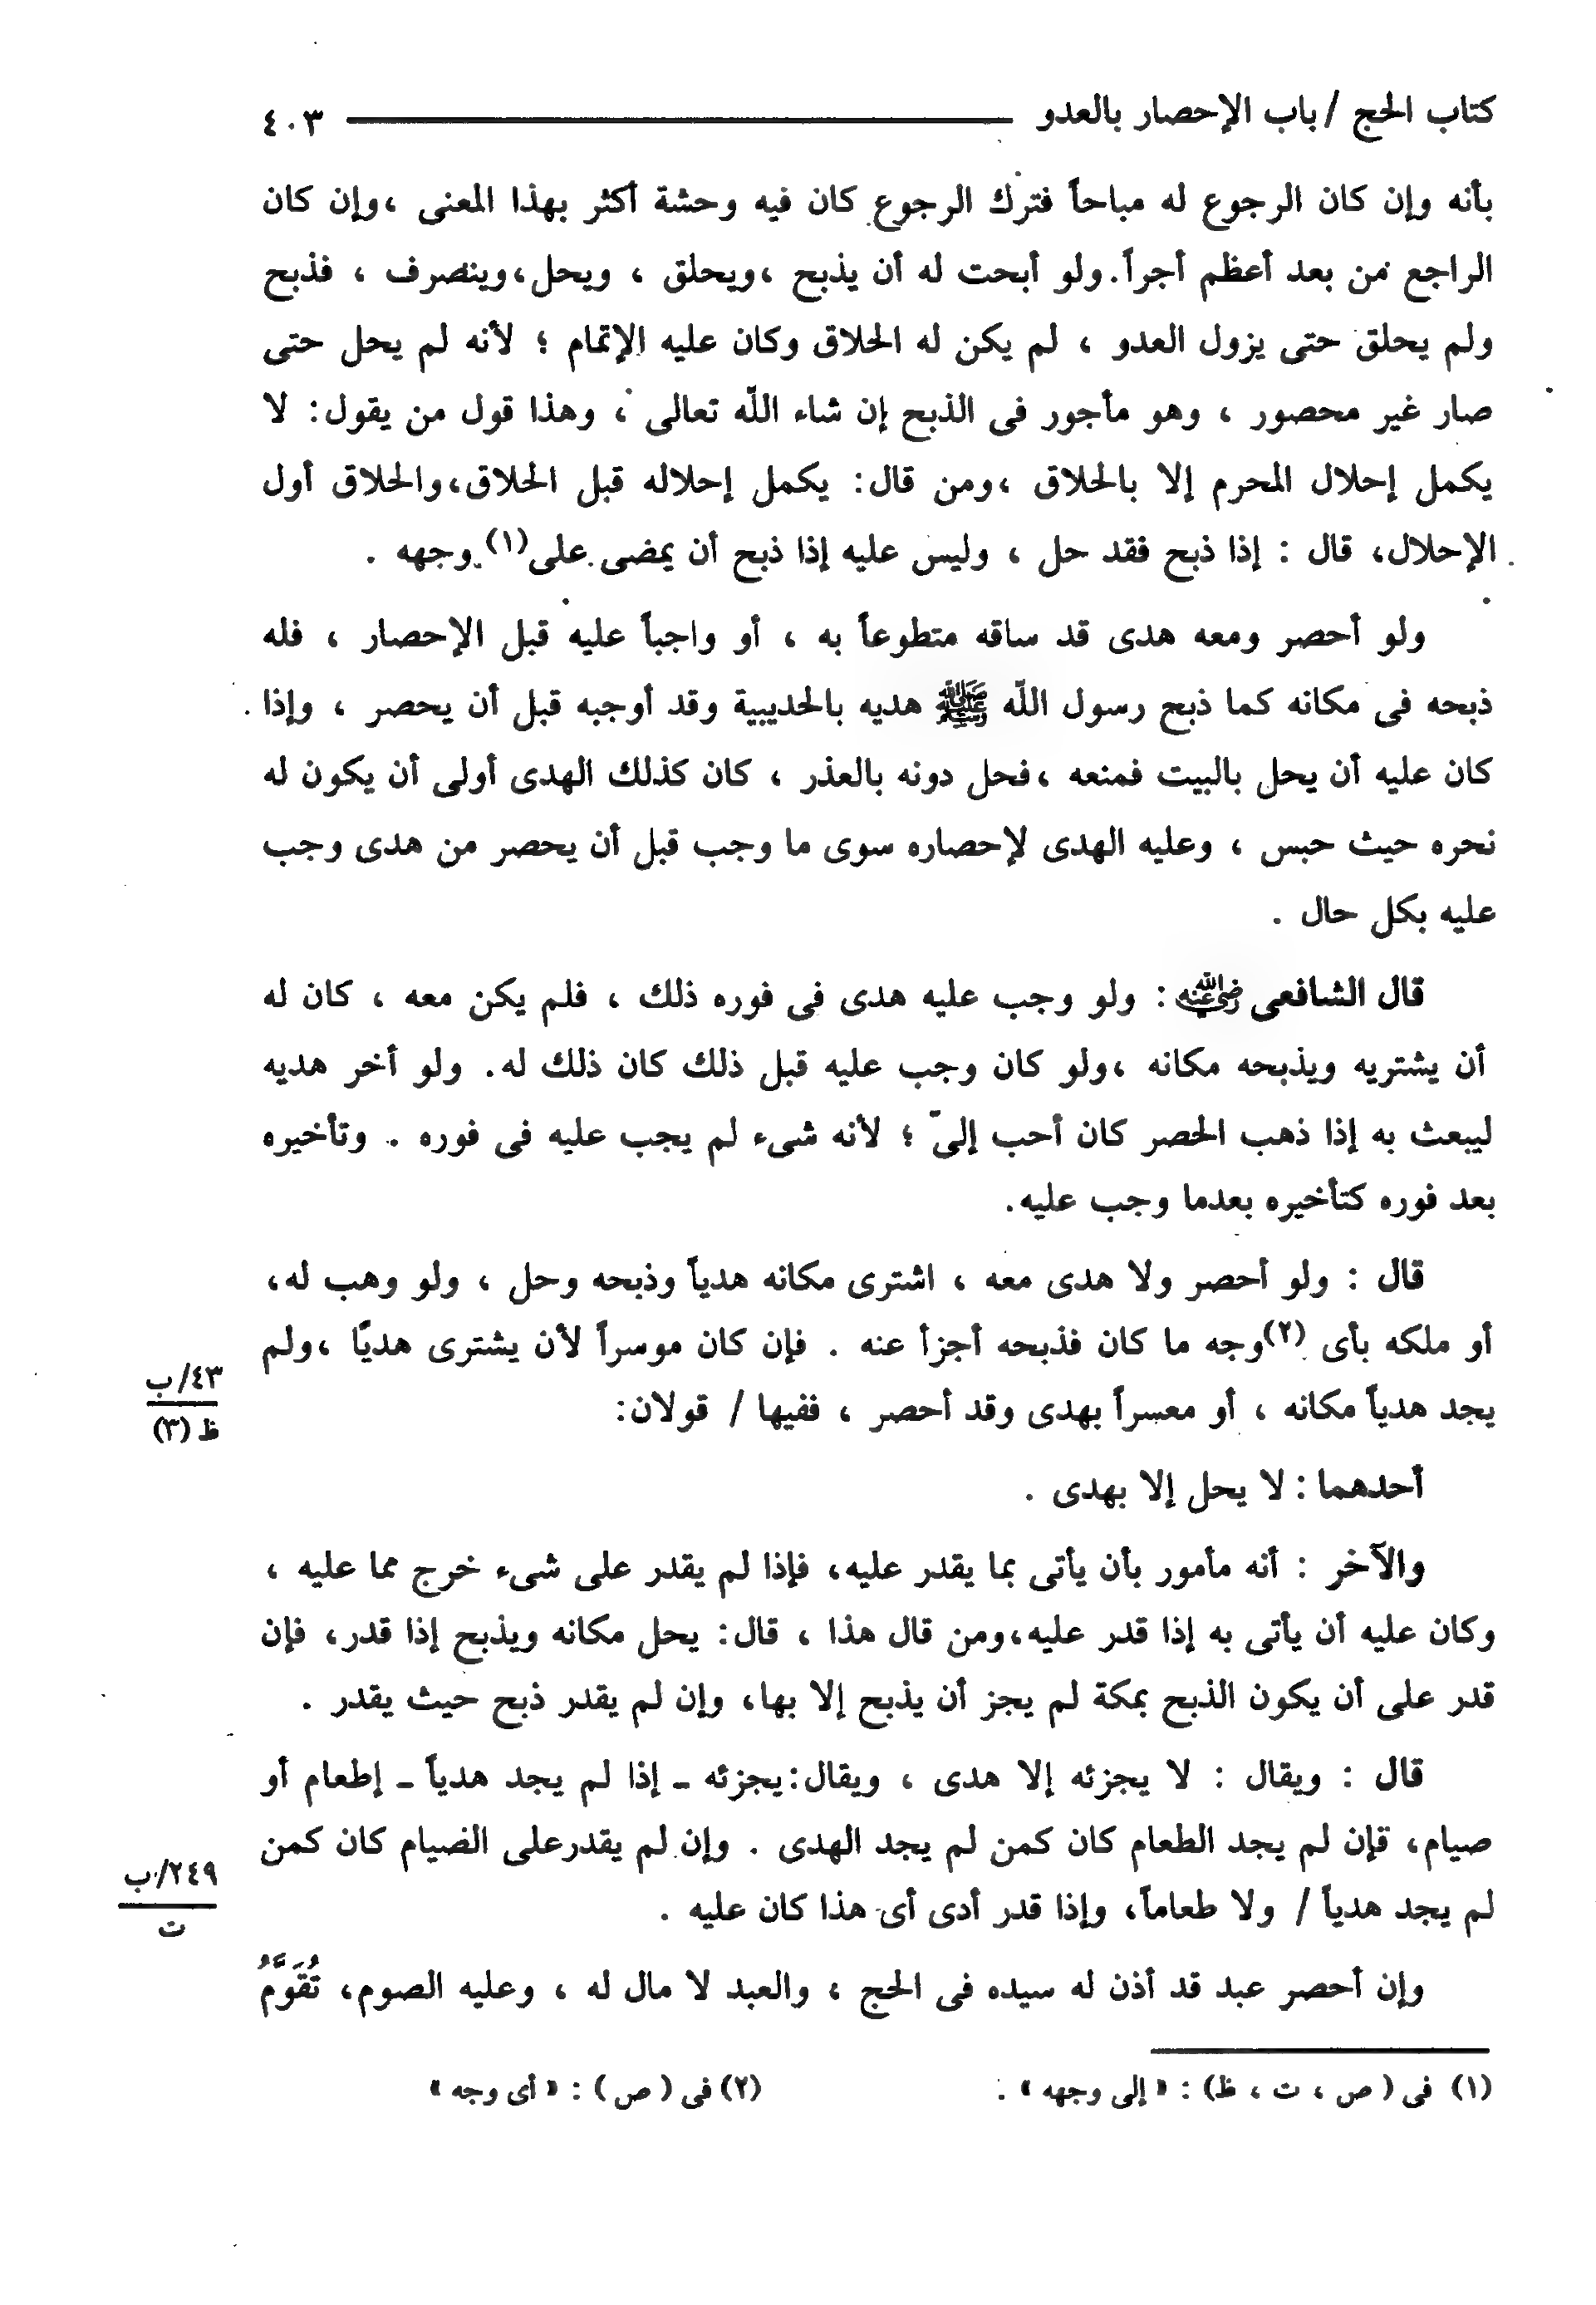 كتاب الحج / باب الإحصار بالعدو ٤٠٣
بأنه وإن كان الرجوع له مباحاً فترك الرجوع كان فيه وحشة أكثر بهذا المعنى ،وإن كان
الراجع من بعد أعظم أجراً.ولو أبحت له أن يذبح ،ويحلق ، ويحل،وينصرف ، فذبح
ولم يحلق حتى يزول العدو ، لم يكن له الحلاق وكان عليه الإتمام ؛ لأنه لم يحل حتى
صار غير محصور ، وهو مأجور فى الذبح إن شاء اللّه تعالى ، وهذا قول من يقول: لا
يكمل إحلال المحرم إلا بالحلاق ،ومن قال: يكمل إحلاله قبل الحلاق،والحلاق أول
الإحلال، قال : إذا ذبح فقد حل ، وليس عليه إذا ذبح أن يمضى على(١) وجهه .
ولو أحصر ومعه هدى قد ساقه متطوعاً به ، أو واجباً عليه قبل الإحصار ، فله
ذبحه فى مكانه كما ذبح رسول اللّه ﷺ هديه بالحديبية وقد أوجبه قبل أن يحصر ، وإذا
كان عليه أن يحل بالبيت فمنعه ،فحل دونه بالعذر ، كان كذلك الهدى أولى أن يكون له
نحره حيث حبس ، وعليه الهدى لإحصاره سوى ما وجب قبل أن يحصر من هدى وجب
عليه بكل حال .
قال الشافعى رضي الله عنه : ولو وجب عليه هدى فى فوره ذلك ، فلم يكن معه ، كان له
أن يشتريه ويذبحه مكانه ،ولو كان وجب عليه قبل ذلك كان ذلك له. ولو أخر هديه
ليبعث به إذا ذهب الحصر كان أحب إلىّ ؛ لأنه شىء لم يجب عليه فى فوره . وتأخيره
بعد فوره كتأخيره بعدما وجب عليه.
قال : ولو أحصر ولا هدى معه ، اشترى مكانه هدياً وذبحه وحل ، ولو وهب له،
أو ملكه بأى (٢)وجه ما كان فذبحه أجزأ عنه . فإن كان موسراً لأن يشترى هديًا ،ولم
يجد هدياً مكانه ، أو معسراً بهدى وقد أحصر ، ففيها / قولان:
٤٣/ب
ظ (٣)
أحدهما : لا يحل إلا بهدى .
والآخر : أنه مأمور بأن يأتى بما يقدر عليه، فإذا لم يقدر على شىء خرج مما عليه ،
وكان عليه أن يأتى به إذا قدر عليه،ومن قال هذا ، قال: يحل مكانه ويذبح إذا قدر، فإن
قدر على أن يكون الذبح بمكة لم يجز أن يذبح إلا بها، وإن لم يقدر ذبح حيث يقدر .
قال : ويقال : لا يجزئه إلا هدى ، ويقال:يجزئه ـ إذا لم يجد هدياً ـ إطعام أو
صيام، فإن لم يجد الطعام كان كمن لم يجد الهدى . وإن لم يقدرعلى الصيام كان كمن
لم يجد هدياً / ولا طعاماً، وإذا قدر أدى أى هذا كان عليه .
٢٤٩/ب
ت
وإن أحصر عبد قد أذن له سيده فى الحج ، والعبد لا مال له ، وعليه الصوم، تُقَوَّمُ
(١) فى ( ص ، ت ، ظ) : « إلى وجهه » . (٢) فى ( ص ) : « أى وجه »